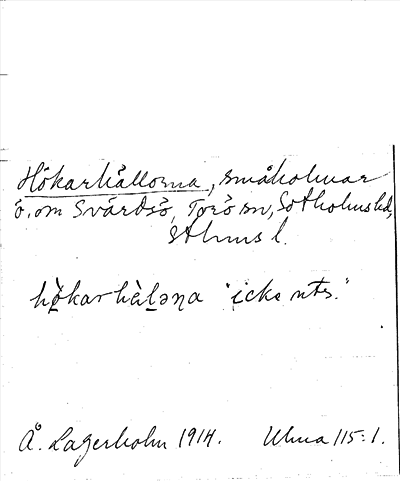 Hökarhållorna, småholmar
ö. om Svärdsö, Torö sn, Sotholms hd,
Sthms l.
hö̀karhàləṇa "icke uts."
Å. Lagerholm 1914. Ulma 115:1.